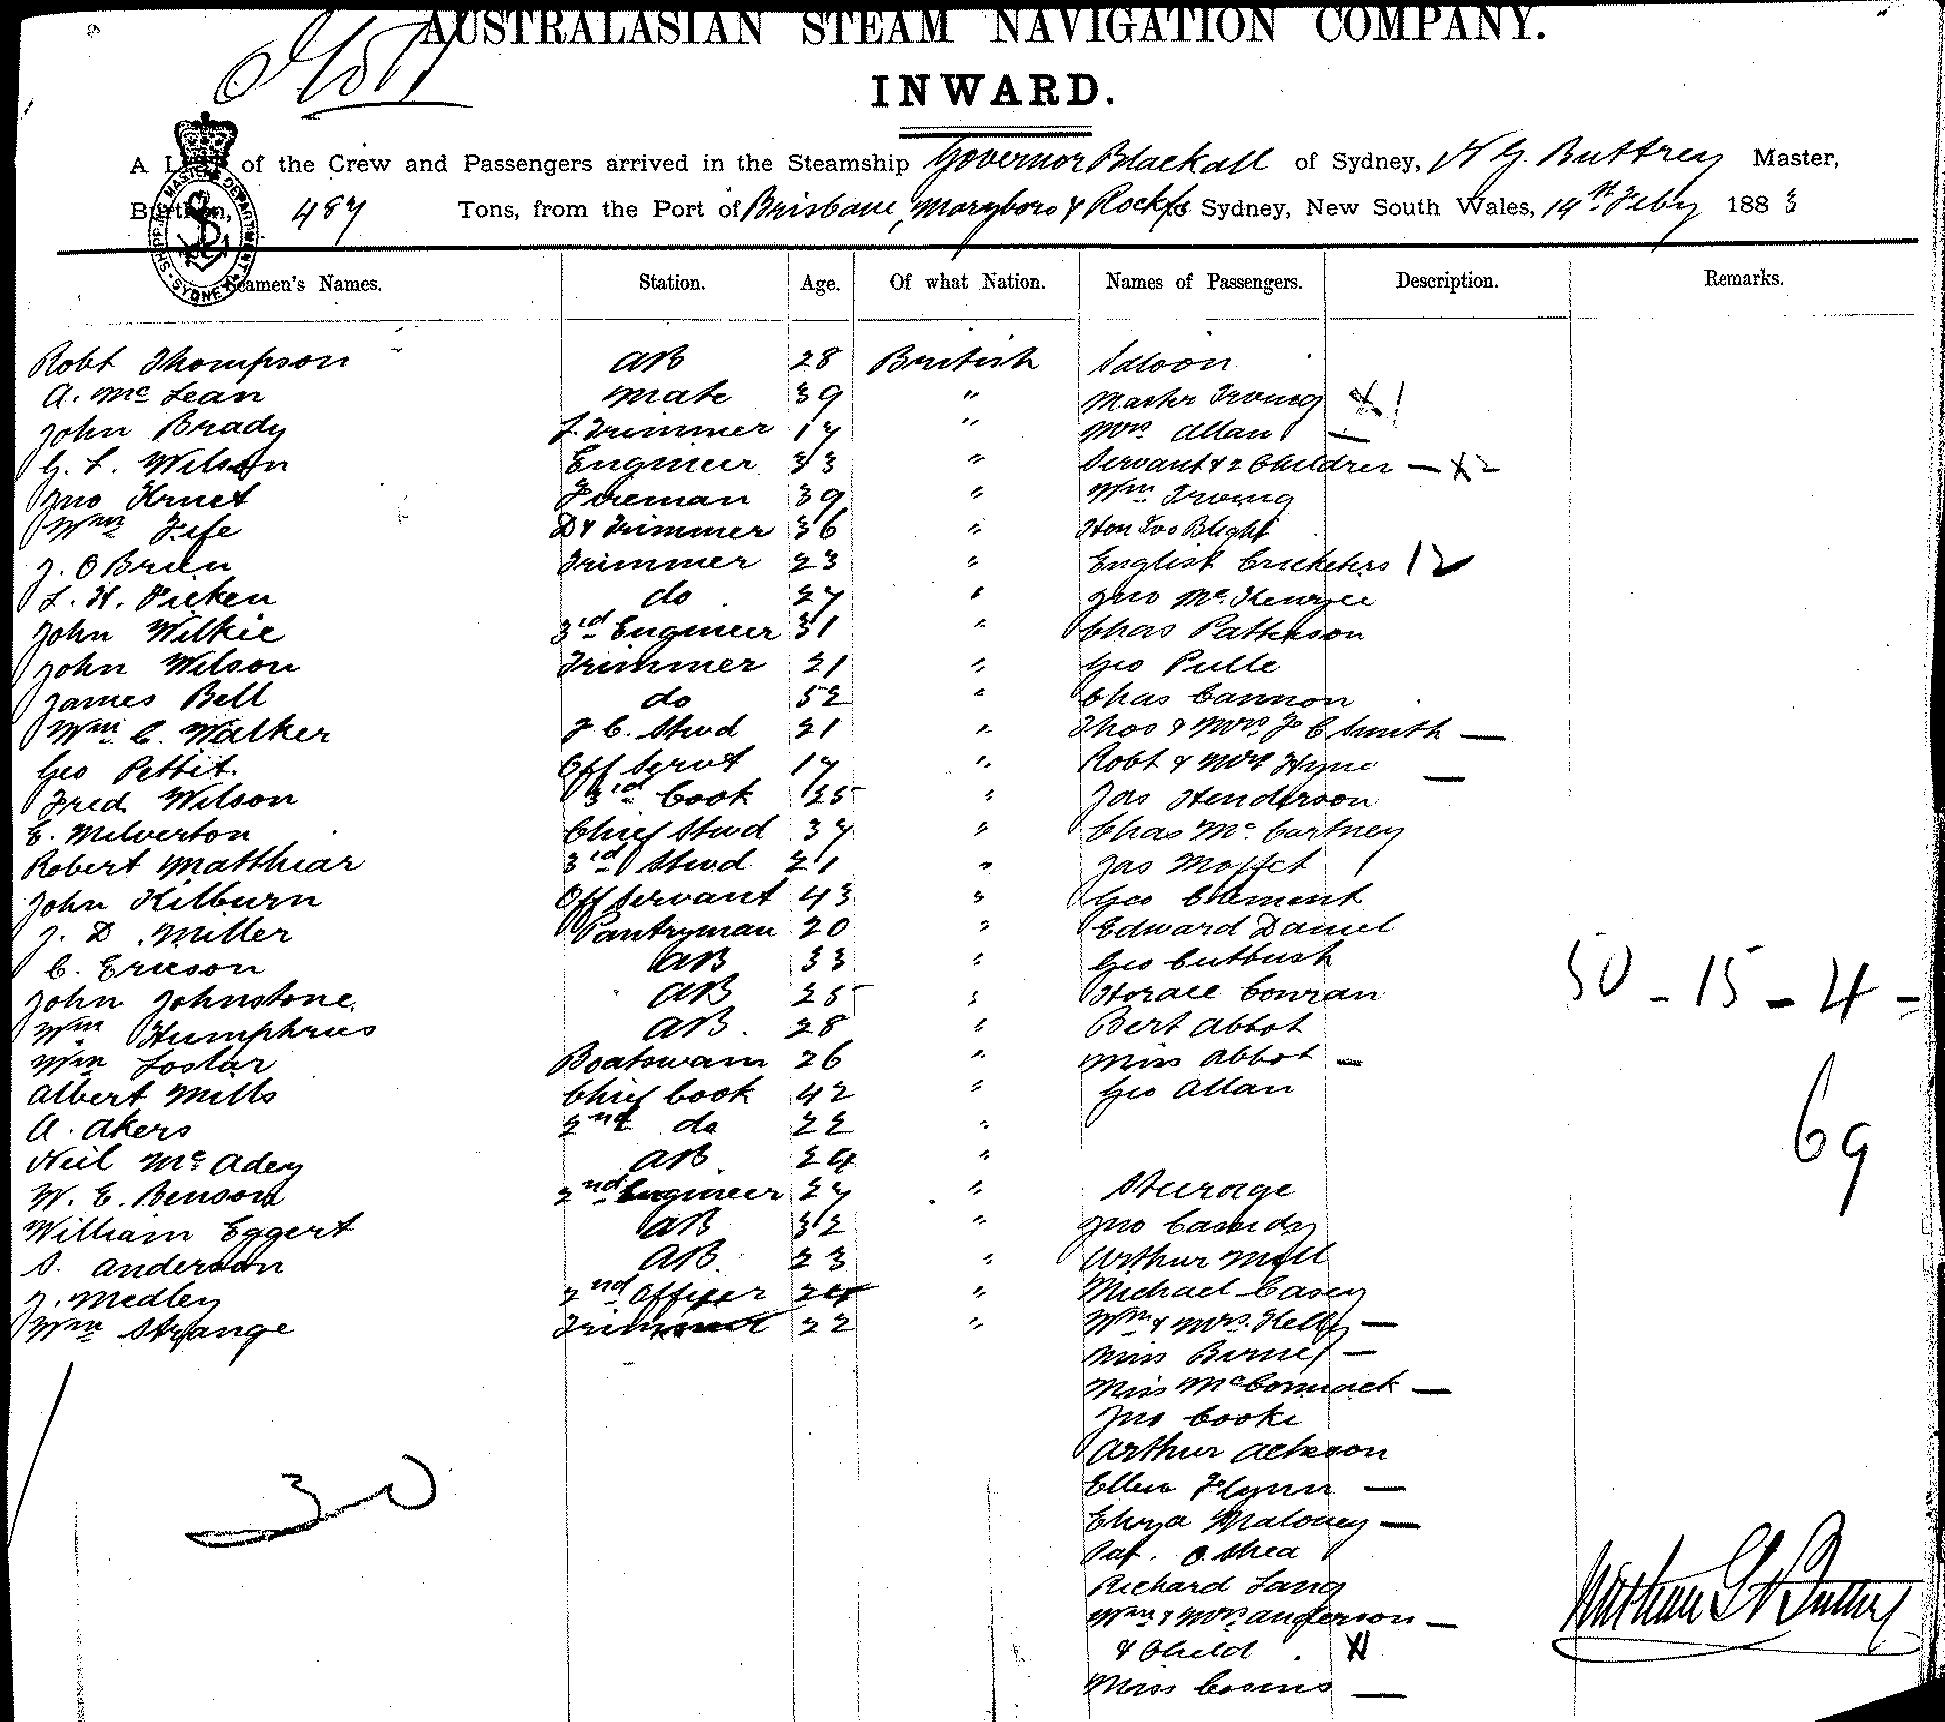 AUSTRALASIAN STEAM NAVIGATION COMPANY.
INWARD.
A List of the Crew and Passengers arrived in the Steamship Governor Blackall of Sydney, N G. Buttrey Master,
Burthen, 487 Tons, from the Port of Brisbane, Maryboro & Rockh to Sydney, New South Wales, 19th Feby 1883
SHIPPING MASTERS DEPARTMENT SYDNEY
Seamen's Names. Station. Age. Of what Nation. Names of Passengers. Description. Remarks.
Robt Thompson AB 28 British Saloon
A. Mc Lean Mate 39 " Master Irving X 1
John Brady F. Trimmer 17 " Mrs Allan —
G. L. Wilson Engineer 33 " Servant & 2 Children — X 2
Jno Fireman 39 " Wm Irving
Wm Fife D & Trimmer 36 " Hon Blight
J. O Brien Trimmer 23 " English Cricketers 12
L. H. do 27 " Jno Mc Kenzie
John Wilkie 3rd Engineer 31 " Chas Patterson
John Wilson Trimmer 21 " Geo Pulle
James Bell do 52 " Chas Cannon
Wm C. Walker F C. Stwd 21 " Thos & Mrs F C Smith —
Geo Pettit Off Servt 17 " Robt & Mrs Hyne —
Fred Wilson 3rd Cook 25 " Jas Henderson
E. Milverton Chief Stwd 37 " Chas Mc Cartney
Robert Matthiar 3rd Stwd 21 " Jas Moffet
John Kilburn Off Servant 43 " Geo Clement
J. D. Miller Pantryman 20 " Edward Daniel
C. Ericson AB 33 " Geo Cutbush 50 - 15 - 4 -
John Johnstone AB 25 " Horace Conran
Wm Humphries AB. 28 " Bert Abbot
Wm Boatswain 26 " Miss Abbot —
Albert Mills Chief Cook 42 " Geo Allan
A. Akers 2nd do 22 " 69
Neil Mc Adey AB. 24 "
W. E. Benson 2nd Engineer 27 " Steerage
William Eggert AB 32 " Jno Cassidy
S. Anderson AB. 23 " Arthur Moll
J. Medley 2nd Officer 24 " Michael Casey
Wm Strange Trimmer 22 " Wm & Mrs. Kelly —
Miss Birney —
Miss McCormack —
Jno Cooke
30 Arthur Acheson
Ellen Flynn —
Eliza Maloney —
Pat. O Shea
Richard Lang
Wm & Mrs Anderson —
& Child X1
Miss Cosens —